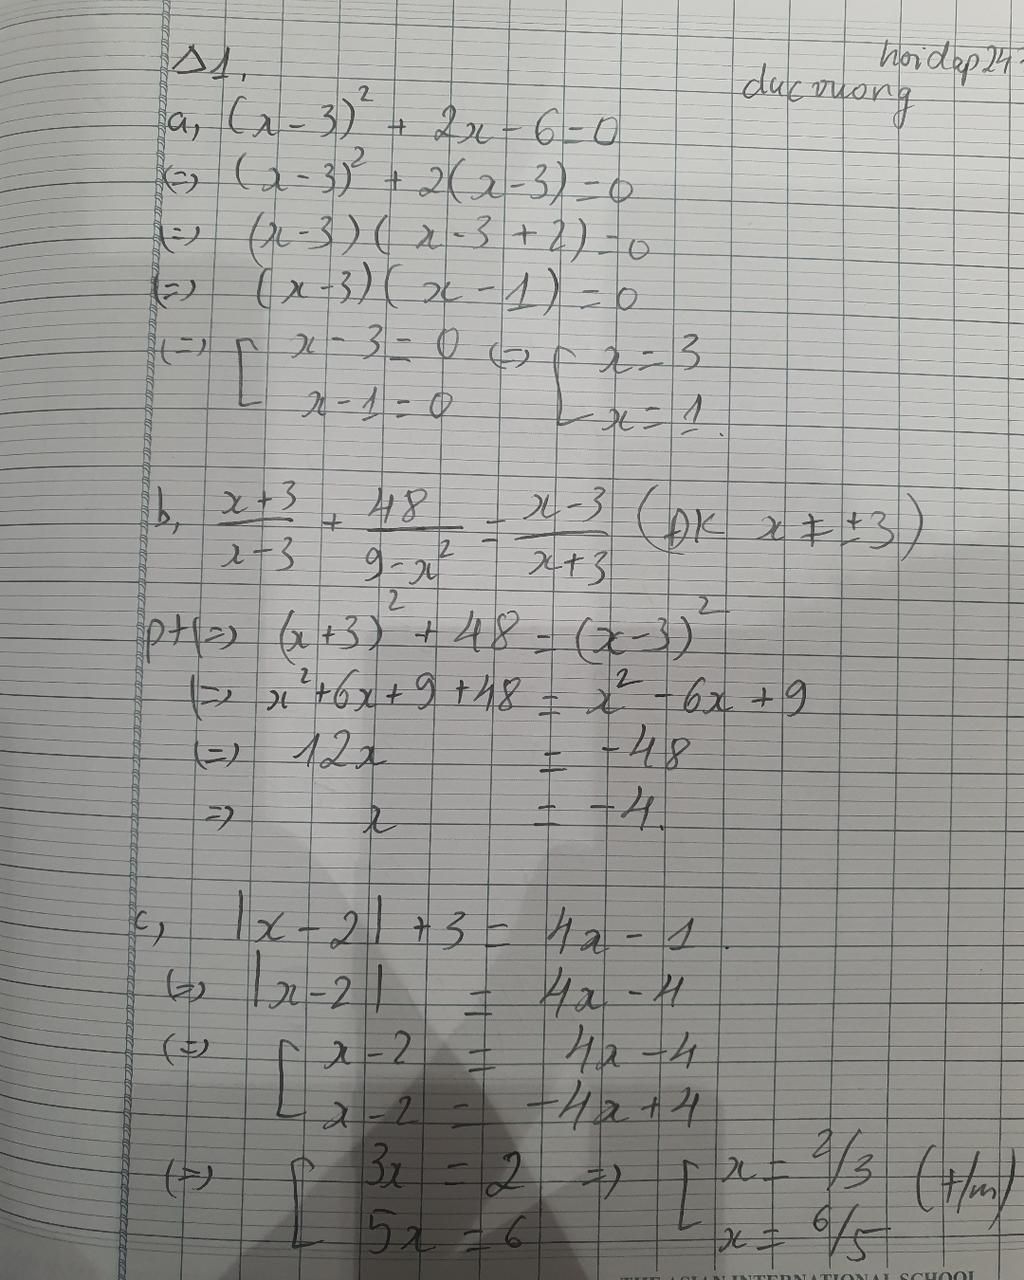 hoidap24
ducvuong
Δ1,
a, (x-3)² + 2x-6=0
(=) (x-3)² + 2(x-3)=0
(=) (x-3)( x-3+2)=0
(=) (x-3)( x-1)=0
(=) [ x-3=0 (=) [ x=3
x-1=0 x=1.
b, (x+3)/(x-3) + 48/(9-x²) = (x-3)/(x+3) (ĐK x≠±3)
pt(=) (x+3)² + 48 = (x-3)²
(=) x²+6x+9+48 = x²-6x+9
(=) 12x = -48
=) x = -4.
c, |x-2|+3 = 4x-1.
(=) |x-2| = 4x-4
(=) [ x-2 = 4x-4
x-2 = -4x+4
(=) [ 3x = 2 =) [ x = 2/3 (t/m)
5x = 6 x = 6/5
THE ASIAN INTERNATIONAL SCHOOL